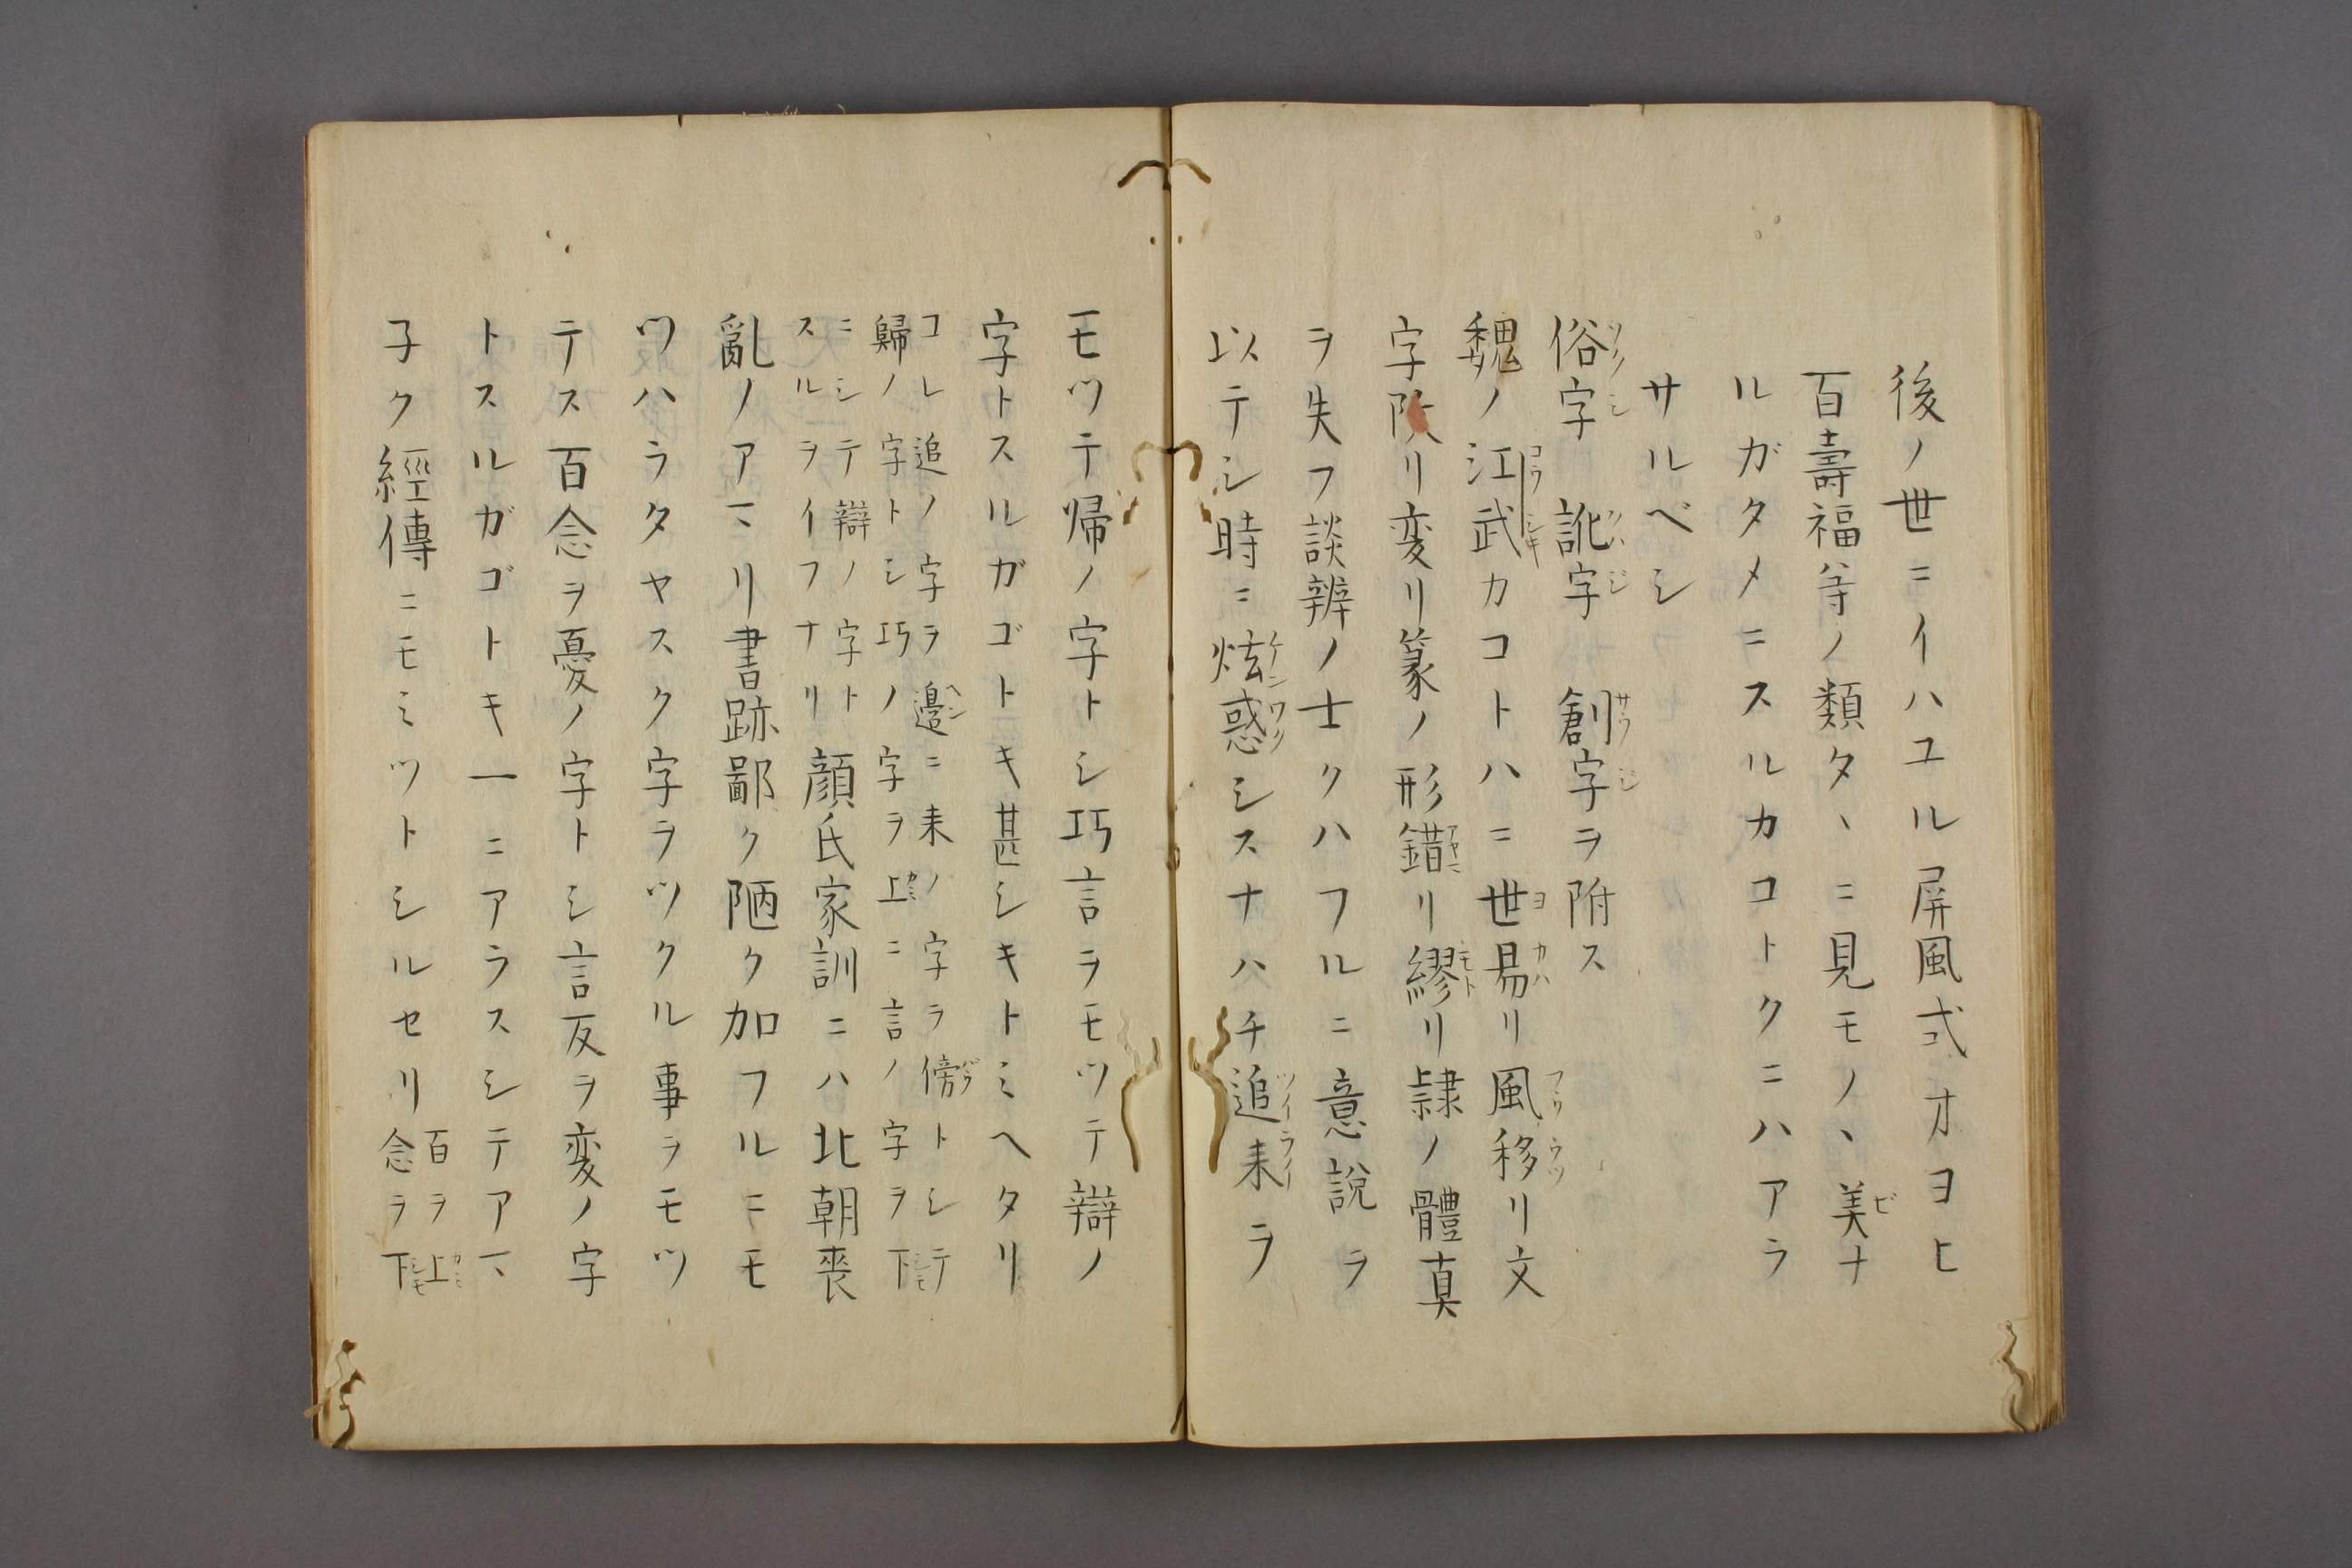 後ノ世ニイハユル屏風式オヨヒ
百壽福等ノ類タヽニ見モノヽ美ナ
ルガタメニスルカコトクニハアラ
サルベシ
俗字 訛字 創字ヲ附ス
魏ノ江式カコトハニ世易リ風移リ文
字改リ変リ篆ノ形錯リ繆リ隷ノ體真
ヲ失フ談辨ノ士クハフルニ意說ヲ
以テシ時ニ炫惑シスナハチ追来ヲ
モツテ帰ノ字トシ巧言ヲモツテ辯ノ
字トスルガゴトキ甚シキトミヘタリ
コレ追ノ字ヲ邉ニ来ノ字ヲ傍トシテ
歸ノ字トシ巧ノ字ヲ上ニ言ノ字ヲ下
ニシテ辯ノ字ト
スルヲイフナリ 顔氏家訓ニハ北朝喪
亂ノアマリ書跡鄙ク陋ク加フルニモ
ツハラタヤスク字ヲツクル事ヲモツ
テス百念ヲ憂ノ字トシ言反ヲ変ノ字
トスルガゴトキ一ニアラスシテアマ
子ク經傳ニモミツトシルセリ 百ヲ上
念ヲ下